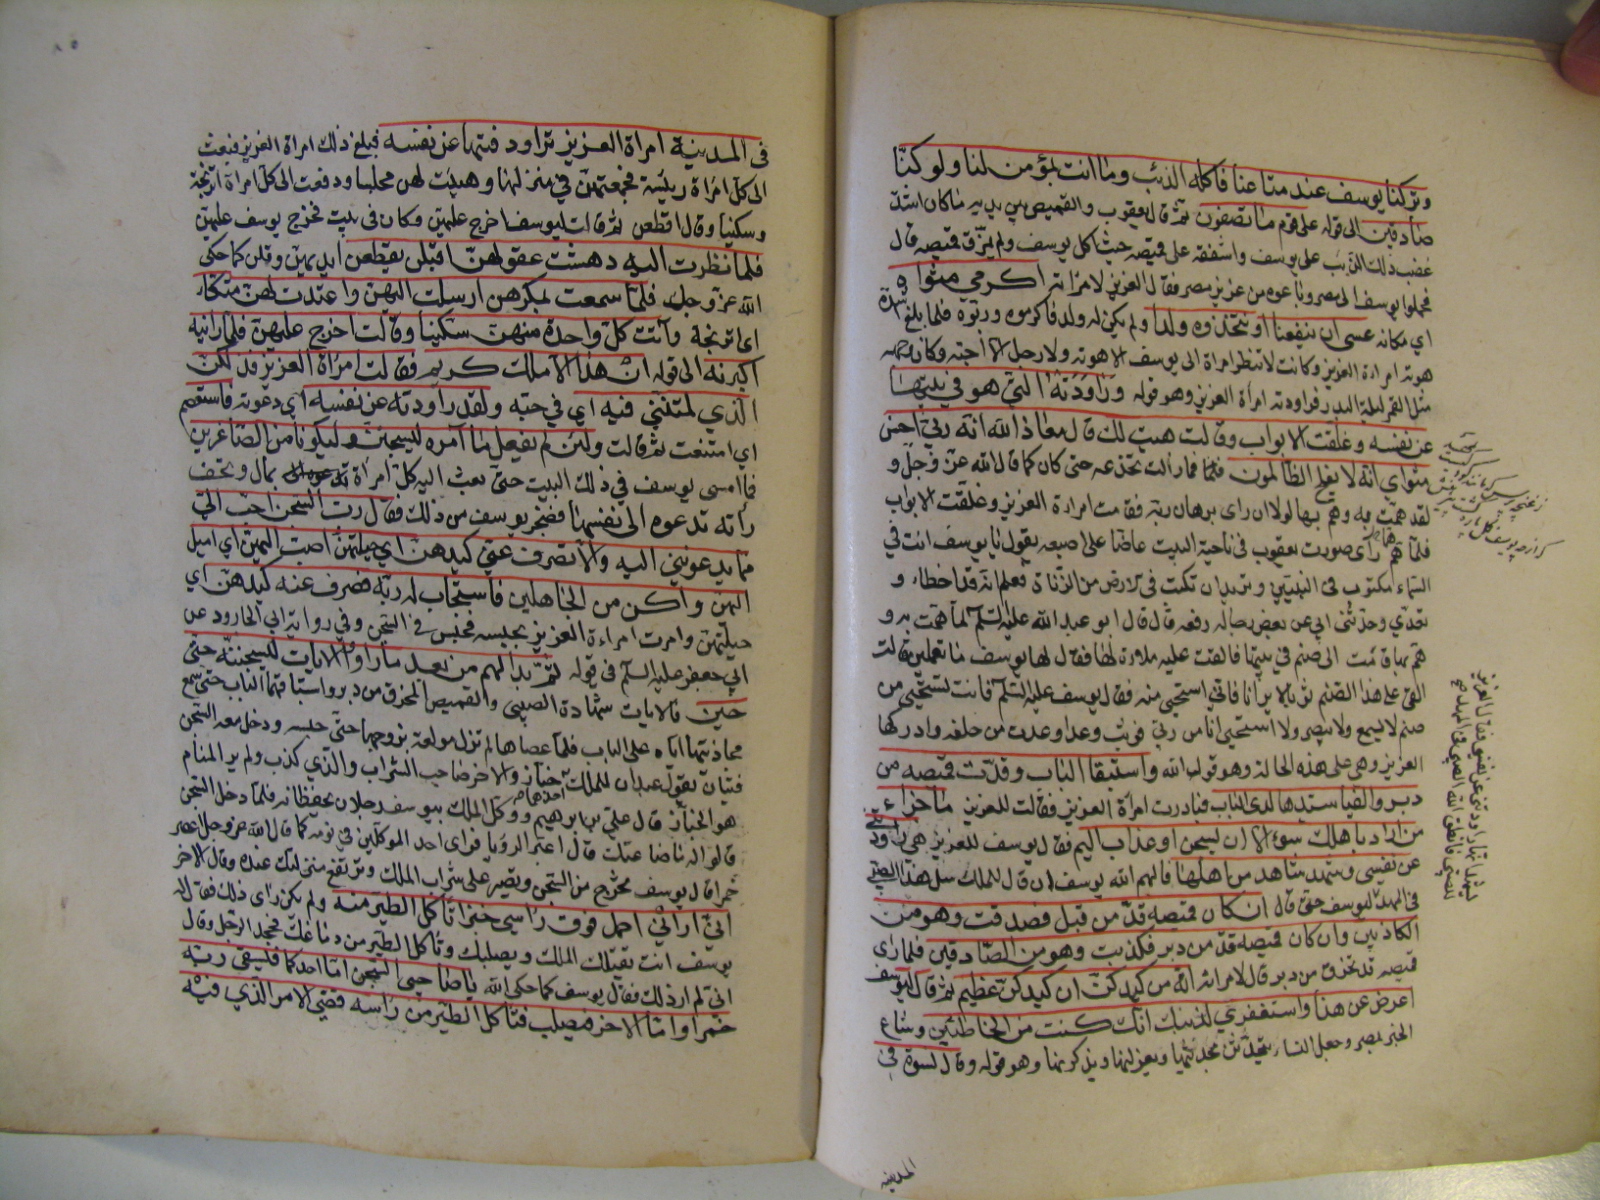 وتركنا يوسف عند متاعنا فاكله الذئب وما انت بمؤمن لنا ولو كنا
صادقين الى قوله على قوم ما تصفون ثم قال يعقوب والقميص بين يديه ما كان اشد
غضب ذلك الذئب على يوسف واشفقه على قميصه حيث اكل يوسف ولم يمزق قميصه قال
فحملوا يوسف الى مصر وباعوه من عزيز مصر فقال العزيز لامراته اكرمي مثواه
اي مكانه عسى ان ينفعنا او نتخذوه ولدا ولم يكن له ولد فاكرموه وربوه فلما بلغ اشده
هوته امراءة العزيز وكانت لا تنظر امراة الى يوسف الا هوته ولا رجل الا احبه وكان وجهه
مثل القمر ليلة البدر فراودته امراة العزيز وهو قوله وراودته التي هو في بيتها
عن نفسه وغلقت الابواب وقالت هيت لك قال معاذ الله انه ربي احسن
مثواي انه لا يفلح الظالمون فما زالت تخدعه حتى كان كما قال الله عز وجل و
لقد همت به وهم بها لولا ان راى برهان ربه فقامت امراءة العزيز وغلقت الابواب
فلما هم راى صورت يعقوب في ناحية البيت عاضا على اصبعه يقول يا يوسف انت في
السماء مكتوب في النبيين وتريد ان تكتب في الارض من الزناة فعلم انه قد اخطاء و
تعدى وحدثني ابي عن بعض رجاله رفعه قال قال ابو عبد الله عليه السلم لما همت به و
هم بها قامت الى صنم في بيتها فالقت عليه ملاءة لها فقال لها يوسف ما تعملين قالت
القي على هذا الصنم ثوبا لا يرانا فاني استحيي منه فقال يوسف عليه السلم فانت تستحيي من
صنم لا يسمع ولا يبصر ولا استحيي انا من ربي فوثب وعدا وعدت من خلفه وادركها
العزيز وهي على هذه الحالة وهو قول الله واستبقا الباب وقدت قميصه من
دبر والفيا سيدها لدى الباب فبادرت امراة العزيز فقالت للعزيز ما جزاء
من اراد باهلك سوءا الا ان يسجن او عذاب اليم فقال يوسف للعزيز هي راودتني
عن نفسي وشهد شاهد من اهلها فالهم الله يوسف ان قال للملك سل هذا الصبي
في المهد ليوسف حتى قال ان كان قميصه قد من قبل فصدقت وهو من
الكاذبين وان كان قميصه قد من دبر فكذبت وهو من الصادقين فلما راى
قميصه قد تخرق من دبر قال لامراته انه من كيدكن ان كيدكن عظيم ثم قال ليوسف
اعرض عن هذا واستغفري لذنبك انك كنت من الخاطئين وشاع
الخبر بمصر وجعل النساء يتحدثن بحديثها ويعذلنها ويذكرنها وهو قوله وقال نسوة في
المدينة
في المدينة امراة العزيز تراود فتيها عن نفسه فبلغ ذلك امراة العزيز فبعث
الى كل امراة رئيسة فجمعتهن في منزلها وهيئت لهن مجلسا ودفعت الى كل امراة اترنجة
وسكينا وقال اقطعن ثم قالت ليوسف اخرج عليهن وكان في بيت فخرج يوسف عليهن
فلما نظرت اليه دهشت عقولهن اقبلن يقطعن ايديهن وقلن كما حكى
الله عز وجل فلما سمعت بمكرهن ارسلت اليهن واعتدت لهن متكاء
اي اترنجة وآتت كل واحدة منهن سكينا وقالت اخرج عليهن فلما راينه
اكبرنه الى قوله ان هذا الا ملك كريم فقالت امراة العزيز فذلكن
الذي لمتنني فيه اي في حبه ولقد راودته عن نفسه اي دعوته فاستعصم
اي امتنعت ثم قالت ولئن لم يفعل ما آمره ليسجنن وليكونا من الصاغرين
فما امسى يوسف في ذلك البيت حتى بعث اليه كل امراة
راته تدعوه الى نفسها فضجر يوسف من ذلك فقال رب السجن احب الي
مما يدعونني اليه والا تصرف عني كيدهن اي حيلتهن اصب اليهن اي اميل
اليهن واكن من الجاهلين فاستجاب له ربه فصرف عنه كيدهن اي
حيلتهن وامرت امراءة العزيز بحبسه فحبس في السجن وفي رواية ابي الجارود عن
ابي جعفر عليه السلم في قوله ثم بدا لهم من بعد ما راوا الايات ليسجننه حتى
حين فالايات شهادة الصبي والقميص المخرق من دبر واستباقهما الباب حتى سمع
مجاذبتها اياه على الباب فلما عصاها لم تزل مولعة بزوجها حتى حبسه ودخل معه السجن
فتيان يقول عبدان للملك احدهما خباز والاخر صاحب الشراب والذي كذب ولم ير المنام
هو الخباز قال علي بن ابرهيم ووكل الملك بيوسف رجلان يحفظانه فلما دخل السجن
قالوا له ما صناعتك قال اعبر الرؤيا فراى احد الموكلين في نومه كما قال الله عز وجل اعصر
خمرا قال يوسف تخرج من السجن وتصير على شراب الملك وترتفع منزلتك عنده وقال الاخر
اني اراني احمل فوق راسي خبزا تاكل الطير منه ولم يكن راى ذلك فقال له
يوسف انت يقتلك الملك ويصلبك وتاكل الطير من دماغك فجحد الرجل وقال
اني لم ار ذلك فقال يوسف كما حكى الله يا صاحبي السجن اما احدكما فيسقي ربه
خمرا واما الاخر فيصلب فتاكل الطير من راسه قضي الامر الذي فيه